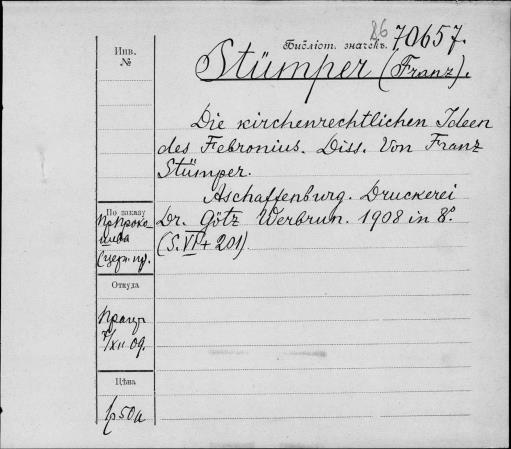 86
Библіот. значекъ. 70657.
Инв.
№
Stümper (Franz).
Die kirchenrechtlichen Ideen
des Febronius. Diss. Von Franz
Stümper.
Aschaffenburg. Druckerei
Dr. Götz Werbrun. 1908 in 8°.
(S. VI + 201)
По заказу
Пр. Проко-
Откуда
7/XII 09.
Цѣна
1р 50к